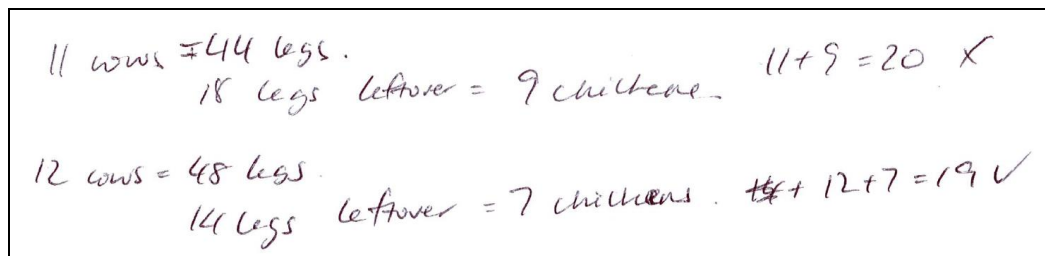 11 cows = 44 legs. 11+9 = 20 ✗
18 legs leftover = 9 chickens.
12 cows = 48 legs.
14 legs leftover = 7 chickens. 12+7 = 19 ✓